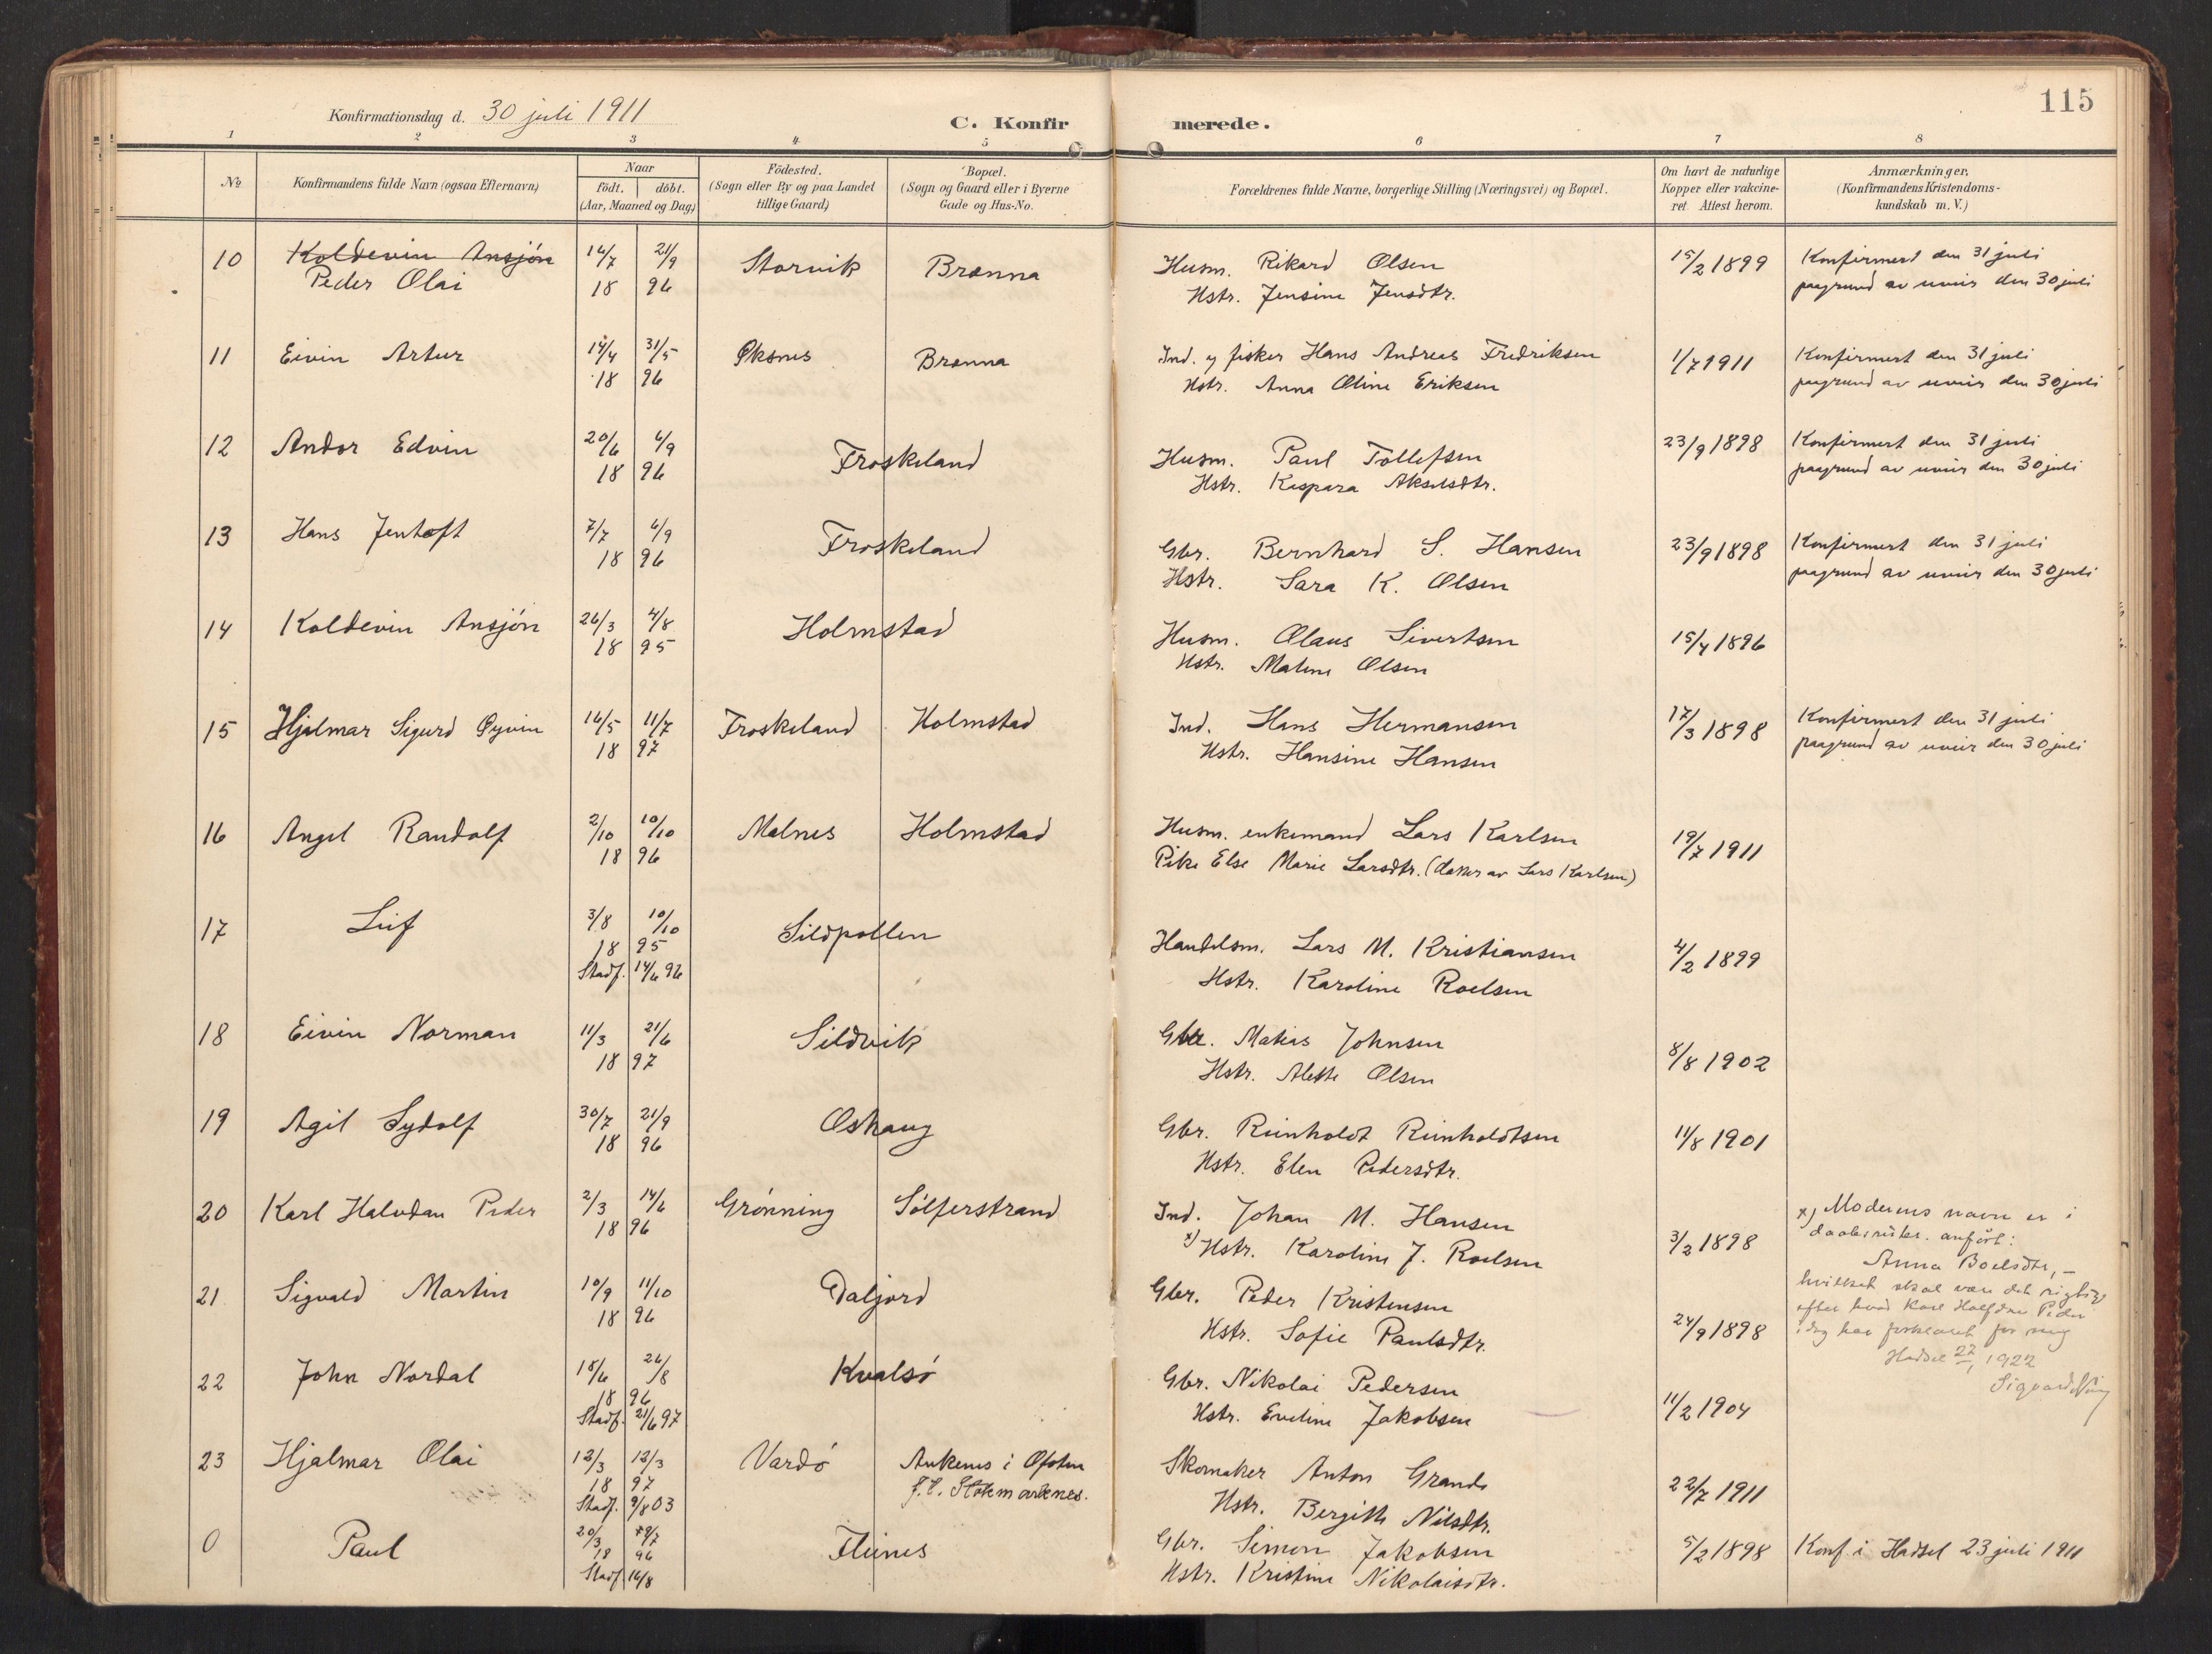 115
Konfirmationsdag d. 30 juli 1911
C. Konfirmerede.
1 2 3 4 5 6 7 8
No
Konfirmandens fulde Navn (ogsaa Efternavn)
Naar
födt. döbt.
(Aar, Maaned og Dag)
Födested.
(Sogn eller By og paa Landet
tillige Gaard)
Bopæl.
(Sogn og Gaard eller i Byerne
Gade og Hus-No.
Forældrenes fulde Navne, borgerlige Stilling (Næringsvei) og Bopæl.
Om havt de naturlige
Kopper eller vakcine-
ret. Attest herom.
Anmærkninger.
(Konfirmandens Kristendoms-
kundskab m. V.)
10 Koldevin Ansjön 16/7 21/9 Storvik Brænna Husm. Rikard Olsen 15/2 1899 Konfirmert den 31 juli
Peder Olai 18 96 Hstr. Jensine Jensdtr. paagrund av uveir den 30 juli
11 Eivin Artur 14/4 31/5 Øksnes Brænna Ind. og fisker Hans Andreas Fredriksen 1/7 1911 Konfirmert den 31 juli
18 96 Hstr. Anna Oline Eriksen paagrund av uveir den 30 juli
12 Andor Edvin 20/6 6/9 Froskeland Husm. Paul Tollefsen 23/9 1898 Konfirmert den 31 juli
18 96 Hstr. Kaspara Akselsdtr. paagrund av uveir den 30 juli
13 Hans Jentoft 7/7 6/9 Froskeland Gbr. Bernhard S. Hansen 23/9 1898 Konfirmert den 31 juli
18 96 Hstr. Sara K. Olsen paagrund av uveir den 30 juli
14 Koldevin Ansjön 26/3 4/8 Holmstad Husm. Olaus Sivertsen 15/4 1896
18 95 Hstr. Maline Olsen
15 Hjalmar Sigurd Øyvin 16/5 11/7 Froskeland Holmstad Ind. Hans Hermansen 17/3 1898 Konfirmert den 31 juli
18 97 Hstr. Hansine Hansen paagrund av uveir den 30 juli
16 Angel Randolf 2/10 10/10 Malnes Holmstad Husm. enkemand Lars Karlsen 19/7 1911
18 96 Pike Else Marie Larsdtr. (datter av Lars Karlsen)
17 Leif 3/8 10/10 Sildpollen Handelsm. Lars M. Kristiansen 4/2 1899
18 95 Hstr. Karoline Roelsen
Stadf. 14/6 96
18 Eivin Norman 11/3 21/6 Sildvik Gbr. Matias Johnsen 8/8 1902
18 97 Hstr. Alette Olsen
19 Agil Sydolf 30/7 21/9 Oshaug Gbr. Reinholdt Reinholdtsen 11/8 1901
18 96 Hstr. Elen Pedersdtr.
20 Karl Halvdan Peder 2/3 14/6 Grönning Sölferstrand Ind. Johan M. Hansen 3/2 1898 x) Moderens navn er i
18 96 x) Hstr. Karoline J. Roelsen daabsrister. anfört:
Anna Boelsdtr, –
hvilket skal være det rigtige
efter hvad Karl Halfdan Peder
idag har forklaret for mig
Hadsel 27/ 1922
21 Sigvald Martin 10/9 11/10 Daljord Gbr. Peder Kristensen 24/9 1898
18 96 Hstr. Sofie Paulsdtr.
22 John Nordal 18/6 26/8 Kvalsö Gbr. Nikolai Pedersen 11/2 1904
18 96 Hstr. Eveline Jakobsen
Stadf. 21/6 97
23 Hjalmar Olai 12/3 12/3 Vardö Ankenes i Ofoten Skomaker Anton Grande 22/7 1911
18 97 f.t. Stokmarknes. Hstr. Bergith Nilsdtr.
Stadf. 9/8 03
0 Paul 20/3 Fleines Gbr. Simon Jakobsen 5/2 1898 Konf i Hadsel 23 juli 1911
18 96 Hstr. Kristine Nikolaisdtr.
Stadf 16/8